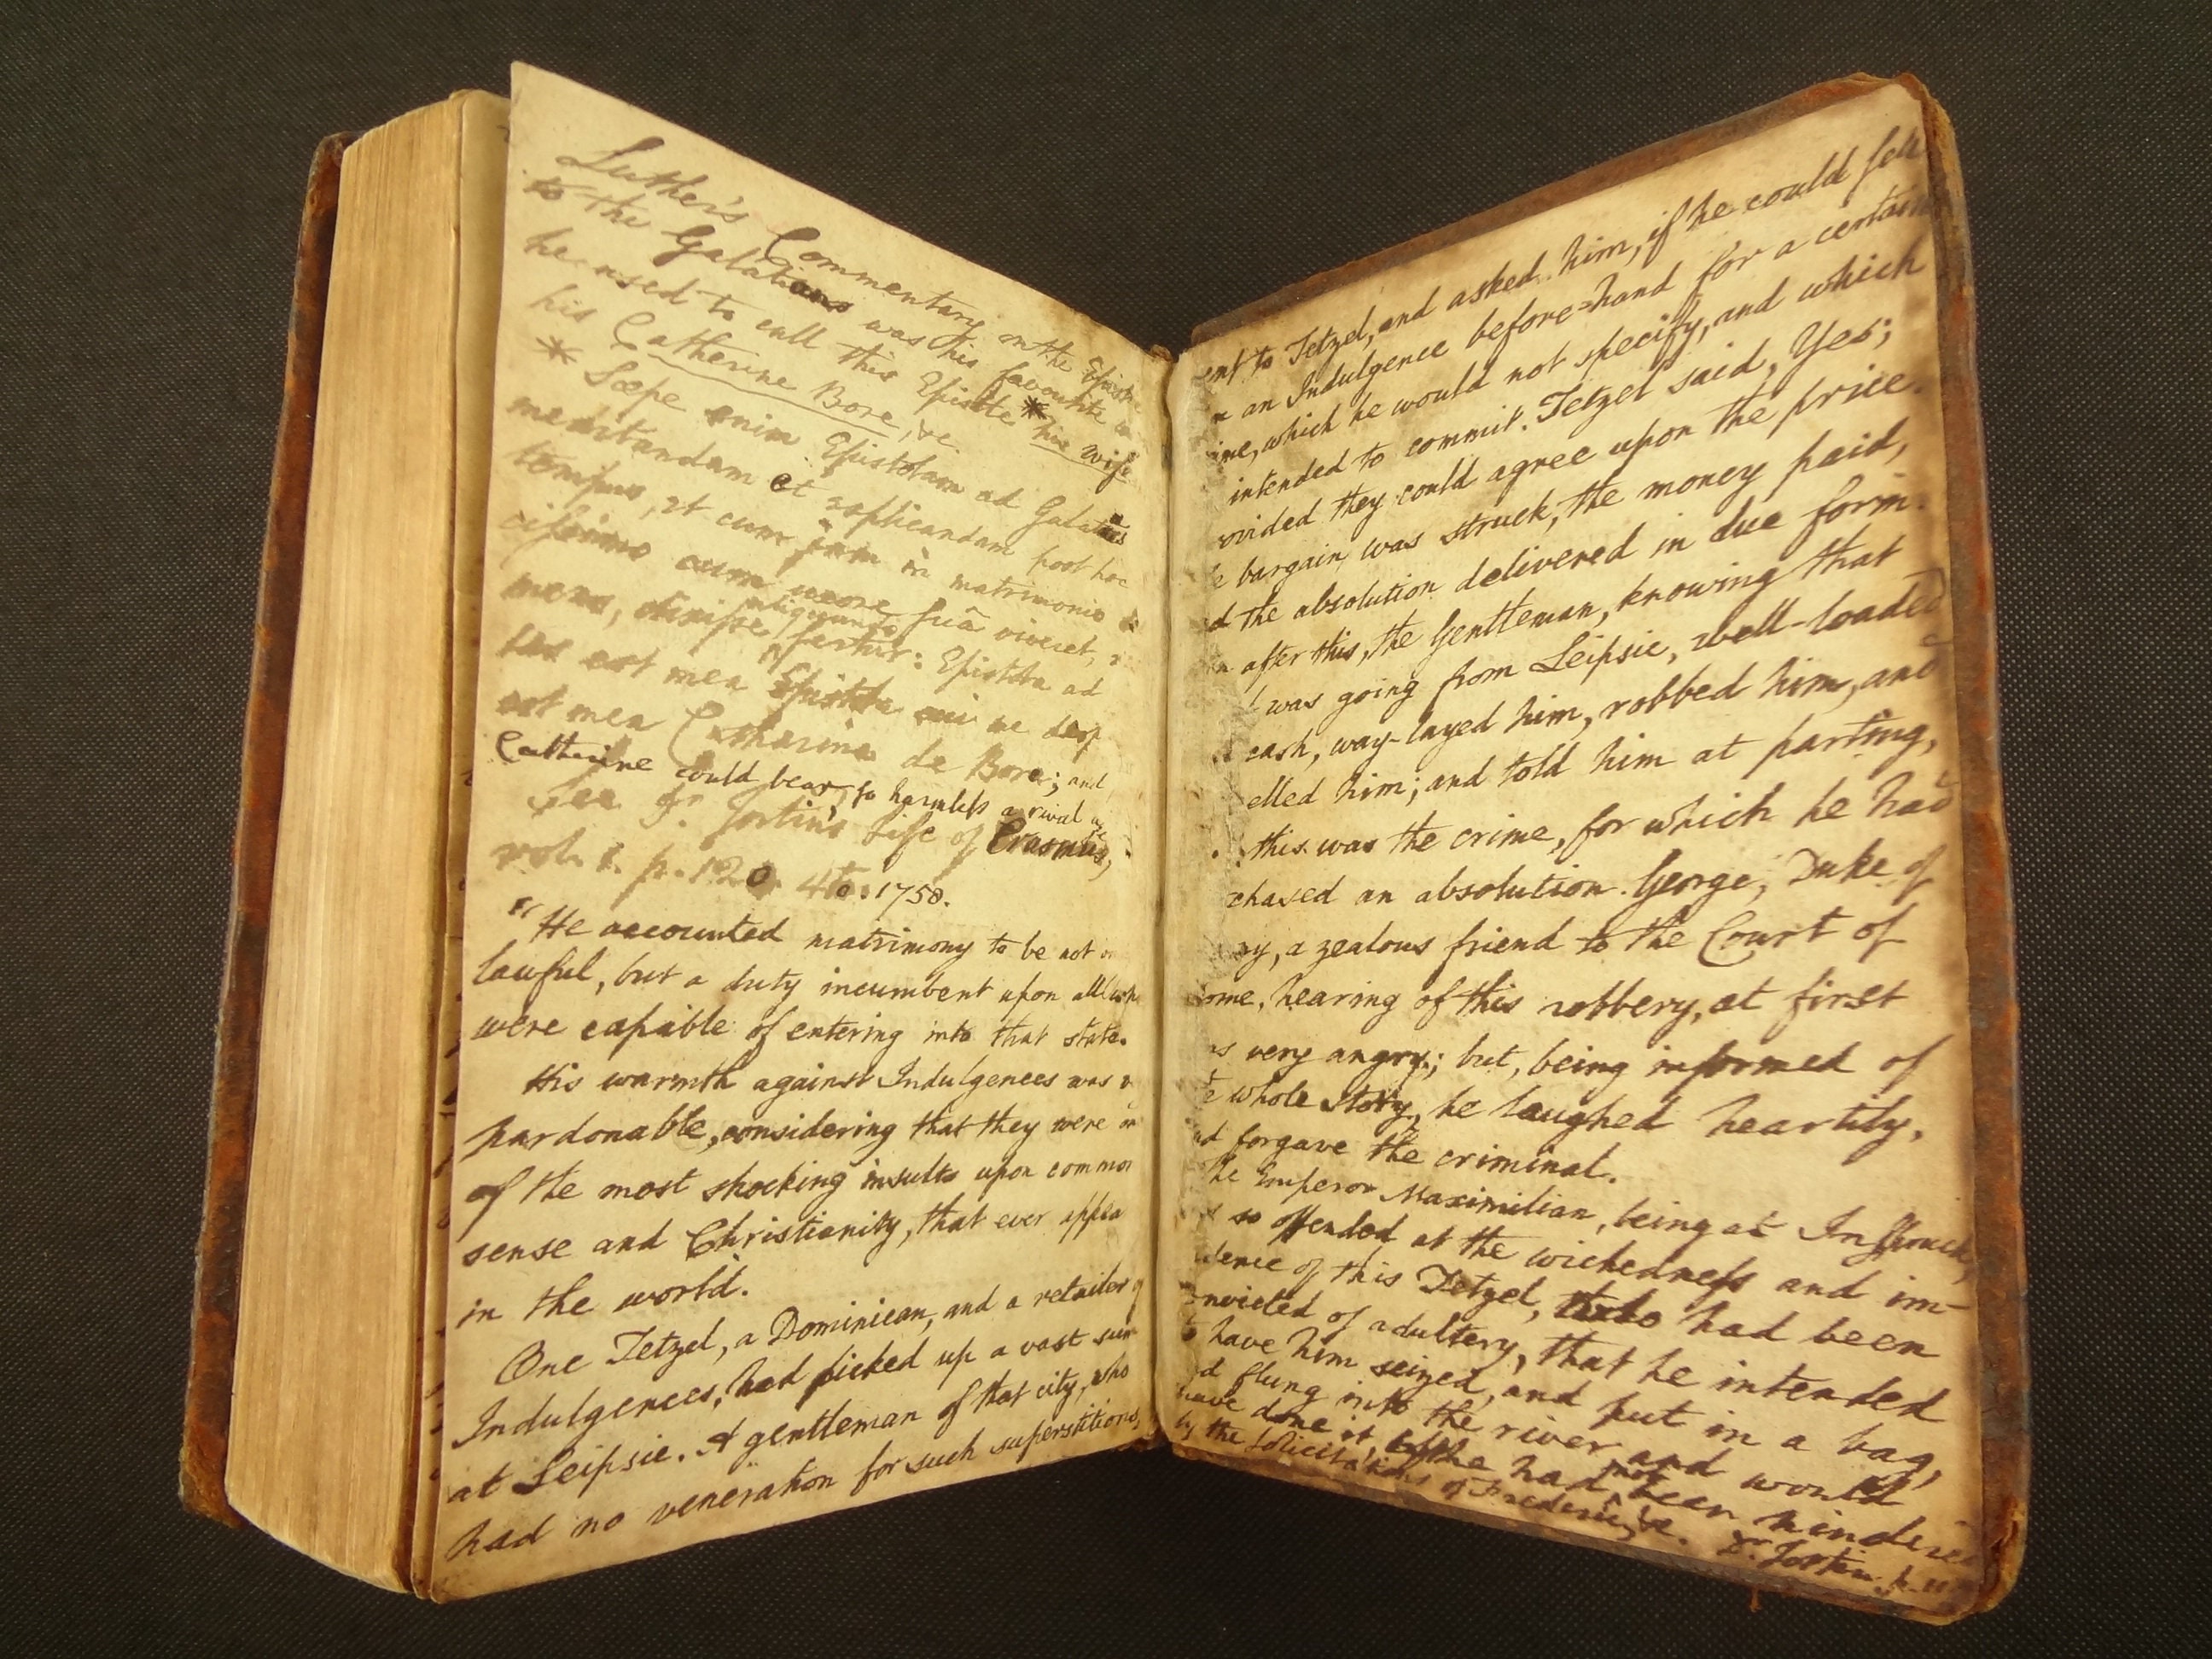 Luther's Commentary on the Epistle
to the Galatians was his favourite
he used to call this Epistle * his wife
his Catherine Bore, &c
* Sæpe enim Epistolam ad Galatas
meditandam et explicandam post hoc
tempus, et cum jam in matrimonio
cum uxore suâ viveret,
fertur: Epistola ad
est mea Epistola cui me
est mea Catharina de Bora; and
Catherine could bear so harmless a rival as
See Dr. Jortin's Life of Erasmus,
vol. 1. p. 120. 4to. 1758.
"He accounted matrimony to be not
lawful, but a duty incumbent upon all who
were capable of entering into that state.
His warmth against Indulgences was
pardonable, considering that they were
of the most shocking insults upon common
sense and Christianity, that ever appea
in the world.
One Tetzel, a Dominican, and a retailer of
Indulgences, had picked up a vast sum
at Leipsic. A gentleman of that city, who
had no veneration for such superstitions,
ent to Tetzel, and asked him, if he could sell
an Indulgence before-hand for a certain
ime, which he would not specify, and which
intended to commit. Tetzel said, Yes;
ovided they could agree upon the price.
e bargain was struck, the money paid,
d the absolution delivered in due form.
after this, the Gentleman, knowing that
was going from Leipsic, well-loaded
cash, way-layed him, robbed him, and
elled him; and told him at parting,
this was the crime, for which he had
chased an absolution. George, Duke of
ny, a zealous friend to the Court of
ome, hearing of this robbery, at first
as very angry; but, being informed of
e whole story, he laughed heartily,
nd forgave the criminal.
The Emperor Maximilian, being at Inspruck,
so offended at the wickedness and im-
dence of this Tetzel, who had been
nvicted of adultery, that he intended
to have him seized, and put in a bag,
nd flung into the river and would
have done it, if he had not been hindered
by the solicitations of Frederic, &c. Dr. Jortin. p.